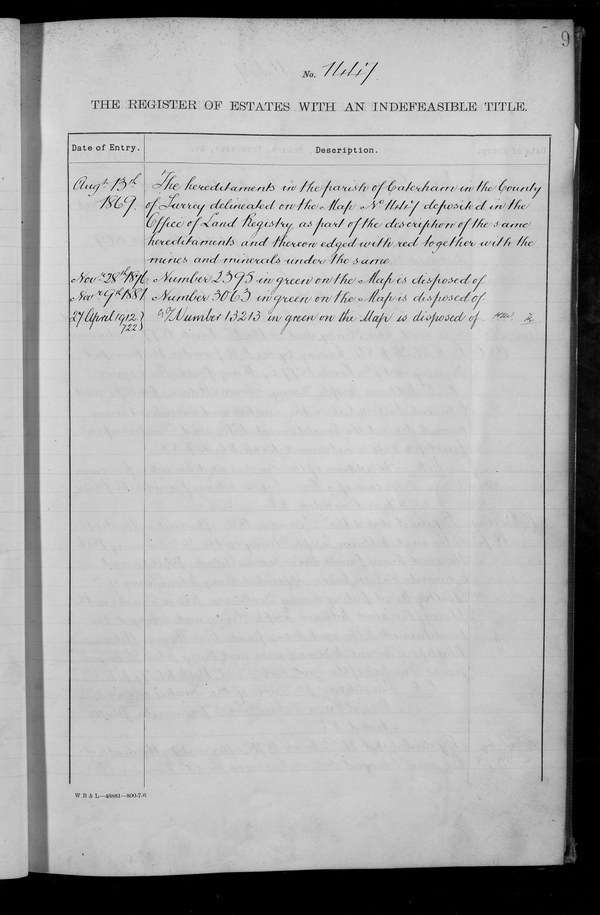 9
No.
THE REGISTER OF ESTATES WITH AN INDEFEASIBLE TITLE.
Date of Entry. Description.
Augt. 13th The hereditaments in the parish of Caterham in the County
1869. of Surrey delineated on the Map No deposited in the
Office of Land Registry, as part of the description of the same
hereditaments and thereon edged with red together with the
mines and minerals under the same.
Novr. 28th 1876 Number 2395 in green on the Map is disposed of
Novr. 9th 1881 Number 3063 in green on the Map is disposed of
27 April 1912 Number 13213 in green on the Map is disposed of
722
W B & L—48881—800-7-6